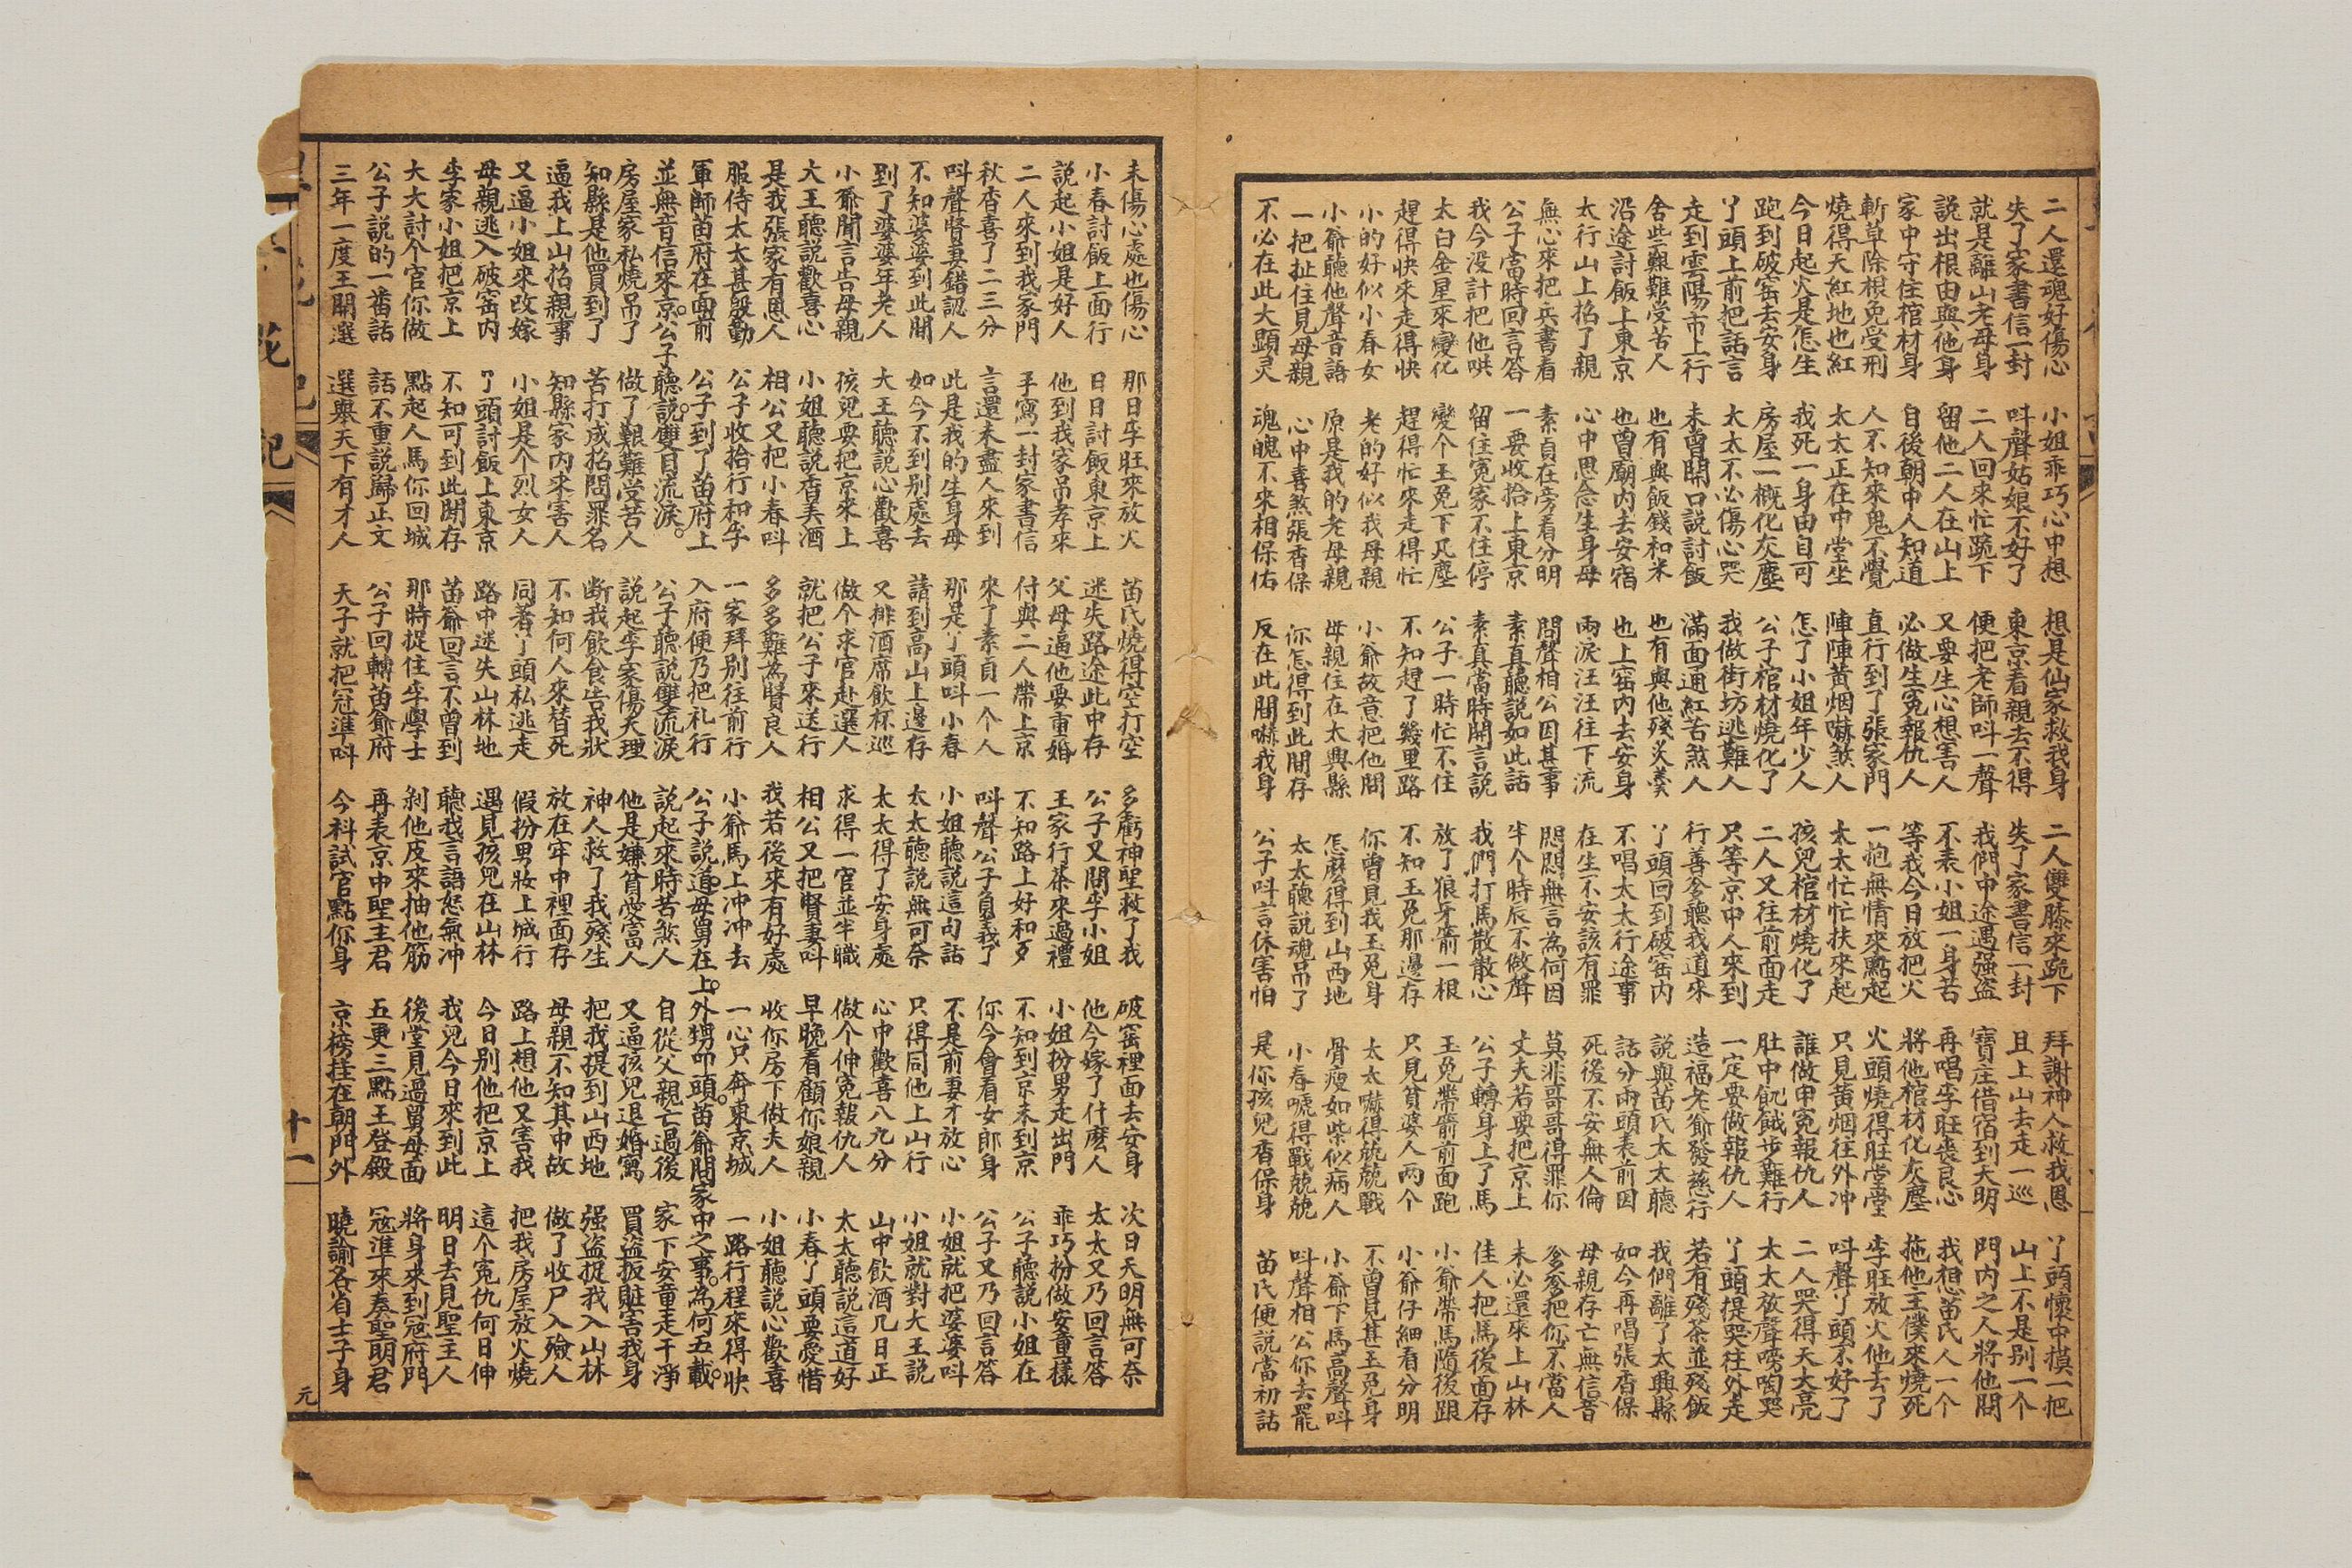 二人還魂好傷心 小姐乖巧心中想 想是仙家救我身 二人雙膝來跪下 拜謝神人救我恩 丫頭懷中摸一把
失了家書信一封 呌聲姑娘不好了 東京看親去不得 失了家書信一封 且上山去走一巡 山上不是别一个
就是離山老母身 二人回來忙跪下 便把老師呌一聲 我們中途遇强盗 寶庄借宿到天明 門内之人將他問
説出根由與他身 留他二人在山上 又要生心想害人 不表小姐一身苦 再唱李旺丧良心 我想苗氏人一个
家中守住棺材身 自後朝中人知道 必做生寃報仇人 等我今日放把火 將他棺材化灰塵 拖他主僕來燒死
斬草除根免受刑 人不知來鬼不覺 直行到了張家門 一抱無情來點起 火頭燒得旺堂堂 李旺放火他去了
燒得天紅地也紅 太太正在中堂坐 陣陣黃烟嚇煞人 太太忙忙扶來起 只見黃烟往外冲 呌聲丫頭不好了
今日起火是怎生 我死一身由自可 怎了小姐年少人 孩兒棺材燒化了 誰做申寃報仇人 二人哭得天大亮
跑到破窑去安身 房屋一概化灰塵 公子棺材燒化了 二人又往前面走 肚中飢餓步難行 太太放聲嗙啕哭
丫頭上前把話言 太太不必傷心哭 我做街坊逃難人 只等京中人來到 一定要做報仇人 丫頭提哭往外走
走到雲陽市上行 未曾開口説討飯 滿面通紅苦煞人 行善爹聽我道來 造福老爺發慈行 若有殘茶並殘飯
舍此艱難受苦人 也有與飯錢和米 也有與他殘炎羹 丫頭回到破窑内 説與苗氏太太聽 我們離了太興縣
沿途討飯上東京 也曾廟内去安宿 也上窑内去安身 不唱太太行途事 話分兩頭表前因 如今再唱張香保
太行山上招了親 心中思念生身母 兩淚汪汪往下流 在生不安該有罪 死後不安無人倫 母親存亡無信音
無心來把兵書看 素貞在旁看分明 問聲相公因甚事 悶悶無言為何因 莫非哥哥得罪你 爹爹把你不當人
公子當時回言答 一要收拾上東京 素真聽説如此話 半个時辰不做聲 丈夫若要把京上 未必還來上山林
我今没計把他哄 留住寃家不住停 素真當時開言說 我們打馬散散心 公子轉身上了馬 佳人把馬後面存
太白金星來變化 變个玉兔下凡塵 公子一時忙不住 放了狼牙箭一根 玉兔帶箭前面跑 小爺帶馬隨後跟
趕得快來走得快 趕得忙來走得忙 不知趕了幾里路 不知玉兔那邊存 只見貧婆人兩个 小爺仔細看分明
小的好似小春女 老的好似我母親 小爺故意把他問 你曾見我玉兔身 太太嚇得兢兢戰 不曾見甚玉兔身
小爺聽他聲音語 原是我的老母親 母親住在太興縣 怎麽得到山西地 骨瘦如柴似病人 小爺下馬高聲呌
一把扯住見母親 心中喜煞張香保 你怎得到此間存 太太聽説魂吊了 小春唬得戰兢兢 呌聲相公你去罷
不必在此大顯灵 魂魄不來相保佑 反在此間嚇我身 公子呌言休害怕 是你孩兒香保身 苗氏便説當初話
未傷心處也傷心 那日李旺來放火 苗氏燒得空打空 多虧神聖救了我 破窑裡面去安身 次日天明無可奈
小春討飯上面行 日日討飯東京上 迷失路途此中存 公子又問李小姐 他今嫁了什麽人 太太又乃回言答
説起小姐是好人 他到我家吊孝來 父母逼他要重婚 王家行茶來過禮 小姐扮男走出門 乖巧扮做安童樣
二人來到我家門 手寫一封家書信 付與二人帶上京 不知路上好和歹 不知到京未到京 公子聽説小姐在
秋杏喜了二三分 言還未盡人來到 來了素貞一个人 呌聲公子負義了 你今會看女郎身 公子又乃回言答
呌聲賢妻錯認人 此是我的生身母 那是丫頭呌小春 小姐聽説這句話 不是前妻才放心 小姐就把婆婆呌
不知婆婆到此間 如今不到别處去 請到高山上邊存 太太聽説無可奈 只得同他上山行 小姐就對大王説
到了婆婆年老人 大王聽説心歡喜 又排酒席飲杯巡 太太得了安身處 心中歡喜八九分 山中飲酒几日正
小爺聞言告母親 孩兒要把京來上 做个求官赴選人 求得一官並半職 做个伸寃報仇人 太太聽説這道好
大王聽説歡喜心 小姐聽説香美酒 就把公子來送行 相公又把賢妻呌 早晚看顧你娘親 小春丫頭要愛惜
是我張家有恩人 相公又把小春呌 多多難為賢良人 我若後來有好處 收你房下做夫人 小姐聽説心歡喜
服侍太太甚殷勤 公子收拾行和李 一家拜别往前行 小爺馬上冲冲去 一心只奔東京城 一路行程來得快
軍師苗府在面前 公子到了苗府上 入府便乃把礼行 公子説道母舅在上 外甥叩頭 苗爺問家中之事為何五載
並無音信來京 公子聽説雙目流淚 公子聽説雙流淚 説起來時苦煞人 自從父親亡過後 家下安童走干凈
房屋家私燒吊了 做了艱難受苦人 説起李家傷天理 他是嫌貧愛富人 又逼孩兒退婚寫 買盗扳賍害我身
知縣是他買到了 苦打成招問罪名 断我飲食告我狀 神人救了我殘生 把我提到山西地 强盗捉我入山林
逼我上山招親事 知縣家内來害人 不知何人來替死 放在牢中裡面存 母親不知其中故 做了收尸入殮人
又逼小姐來改嫁 小姐是个烈女人 同著丫頭私逃走 假扮男妝上城行 路上想他又害我 把我房屋放火燒
母親逃入破窑内 丫頭討飯上東京 路中迷失山林地 遇見孩兒在山林 今日别他把京上 這个寃仇何日伸
李家小姐把京上 不知可到此間存 苗爺回言不曾到 聽我言語怒氣冲 我兒今日來到此 明日去見聖主人
大大討个官你做 點起人馬你回城 那時捉住李學士 剥他皮來抽他筋 後堂見過舅母面 將身來到冦府門
公子説的一番話 話不重説歸正文 公子回轉苗爺府 再表京中聖主君 五更三點王登殿 冦準來奏聖明君
三年一度王開選 選舉天下有才人 天子就把冦準呌 今科試官點你身 京榜挂在朝門外 曉諭各省士子身
花 記
十一
元